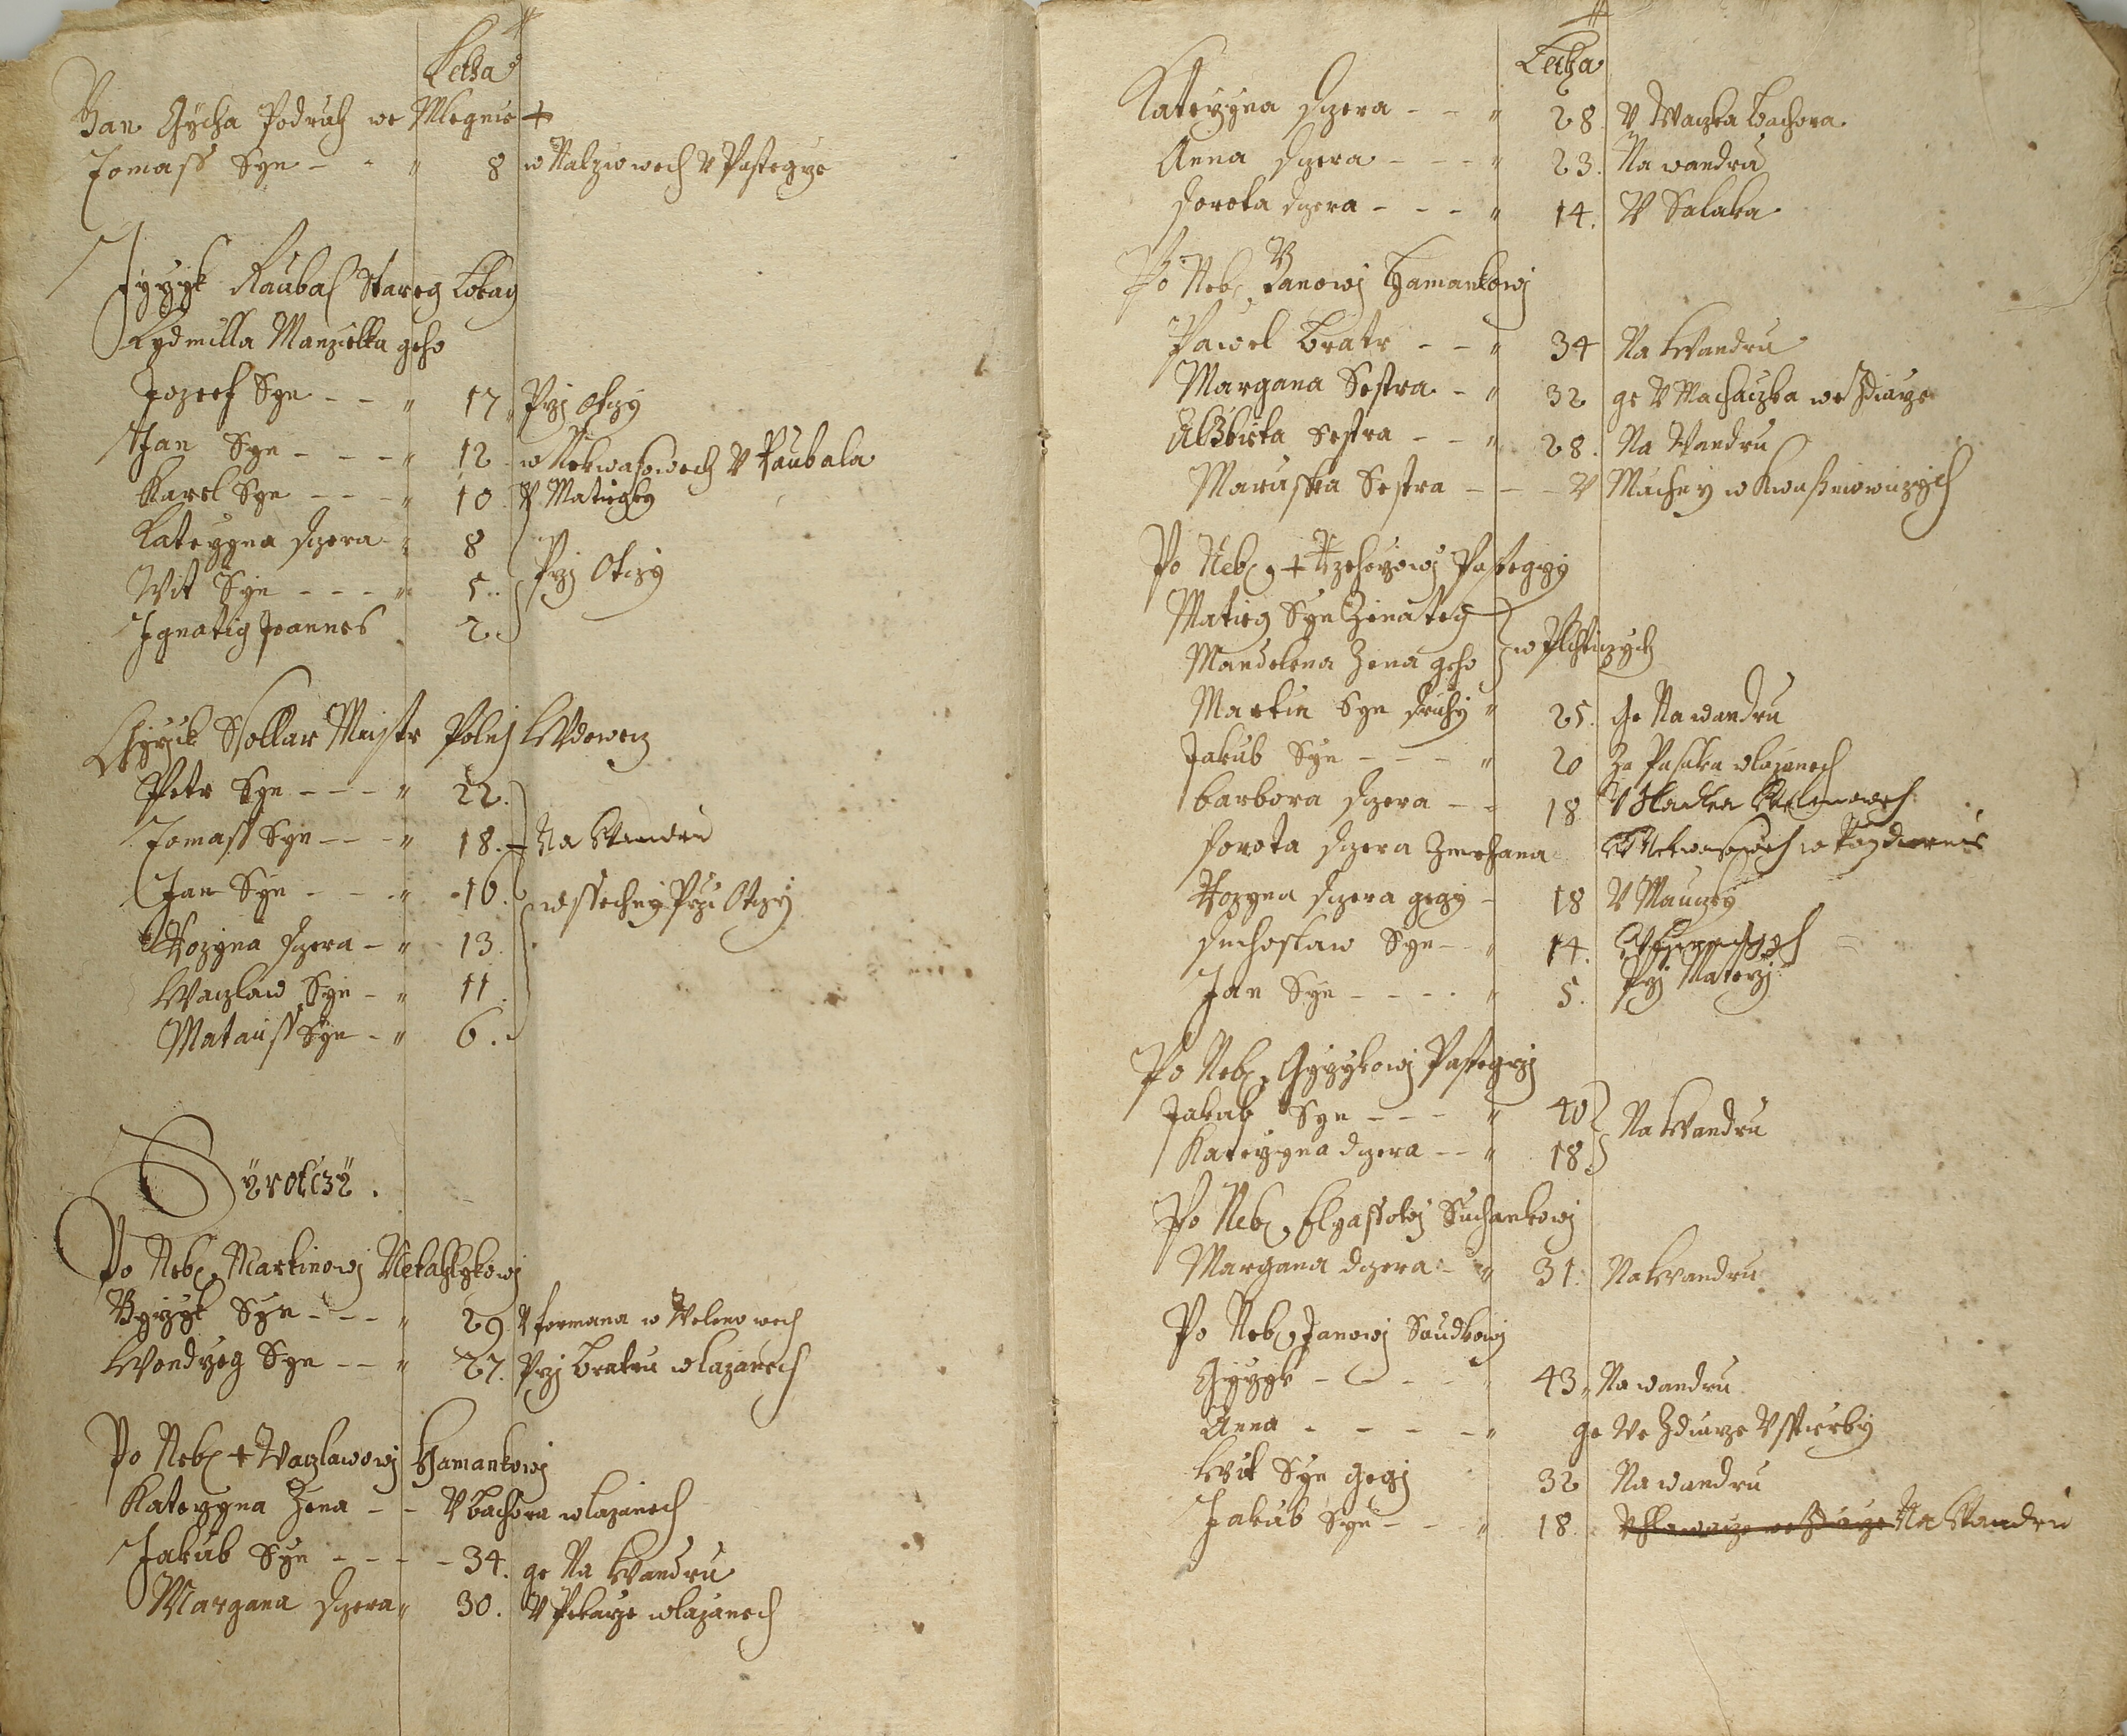 Letha
Jan Gÿcha Podruh we Mlegnie +
Tomass Syn - - " 8 w Nalzowech V Pastegrze
Jyrzyk Raubal Starey Lokay
Lydmilla Manzielka geho
Jozeef Syn - - " 17 Przj Otczy
Jan Syn - - - " 12 w Nekwasowech V Raubala
Karel Syn - - - " 10 V Matiegky
Katerzyna dczera - " 8
Wit Syn - - - " 5. Przj Otczy
Ignatig Joannes 2.
Gjrzik Sollar Mistr Polnj Wdowecz
Petr Syn - - - " 22.
Tomass Syn - - - " 18. Na Wandru
Jan Syn - - - " 16.
wssechny Przi Otczy
Rozyna dczera - " 13.
Waczlaw Syn - " 11.
Matauss Syn - " 6.
Sÿrotczÿ.
Po Neb. Martinowj Netahlykowj
Gyrzyk Syn - - - " 29 V formana w Welenowech
Wondrzeg Syn - - " 27. Przj Bratru w Lazanech
Po Neb. + Waczlawowj Hamankowj
Katerzyna Zena - - V Bachora w Lazanech
Jakub Syn - - - - 34. ge Na Wandru
Margana dczera " 30. V Pekarze w Lazanech
Letha
Katerzyna dczera - - " 28. V Waczka Bachora
Anna dczera - - - " 23. Na wandru
Dorota dczera - - - " 14. V Salaka
Po Neb. Janowj Hamankowj
Pawel Bratr - - " 34 Na Wandru
Margana Sestra - " 32 ge V Machaczka we Zdiarze
Alzbieta Sestra - - " 28. Na Wandru
Marusska Sestra - - - V Machny w
Po Neb. + Rzehorzowj Pastegrzy
Matieg Syn Zenateg
w Plichticzych
Mandelena Zena geho
Martin Syn druhy " 25. Ge Na wandru
Jakub Syn - - - " 20 Za Pasaka w Lazanech
Barbora dczera - - 18
Dorota dczera Zmrhana
Rozyna dczera gegy - 18 V Mauczky
Duchoslaw Syn - - " 14.
Jan Syn - - - - " 5. Przj Materzj
Po Neb. Gyrzykowj Pastegrzj
Jakub Syn - - - " 40
Na Wandru
Katerzyna dczera - - " 18
Po Neb. Elyassowj Suchankowj
Margana dczera - " 31. Na Wandru
Po Neb. Janowj Saudkowj
Gyrzyk - - - - " 43. Na wandru
Anna - - - - " ge We Zdiarze V Sstierby
Wit Syn Gegj 32 Na wandru
Jakub Syn - - " 18. Na Wandru